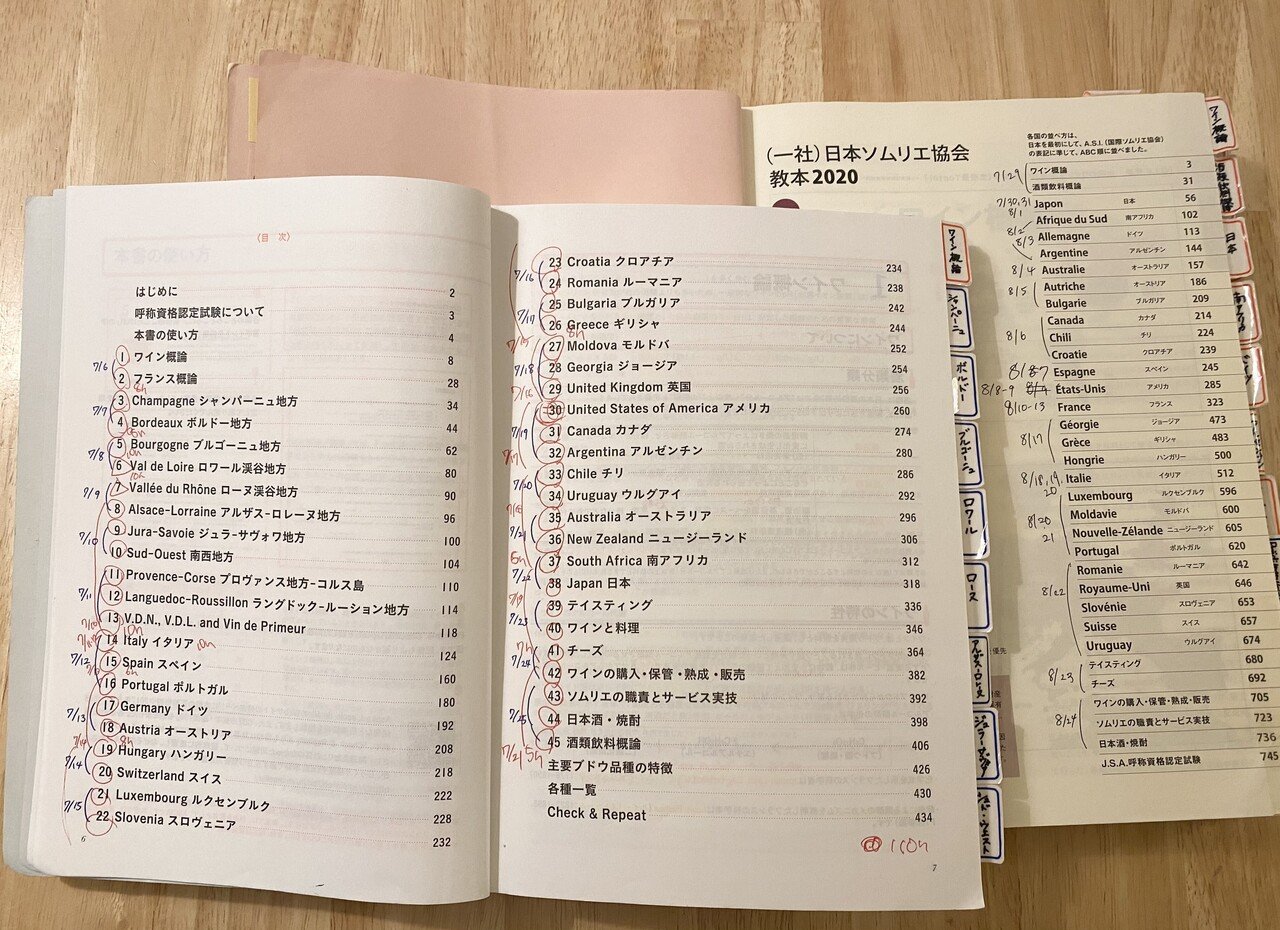 〈目 次〉
はじめに 2
呼称資格認定試験について 3
本書の使い方 4
7/6 1 ワイン概論 8
2 フランス概論 28
7/7 3 Champagne シャンパーニュ地方 34
4 Bordeaux ボルドー地方 44
7/8 5 Bourgogne ブルゴーニュ地方 62
6 Val de Loire ロワール渓谷地方 80
7/9 7 Vallée du Rhône ローヌ渓谷地方 90
8 Alsace-Lorraine アルザス-ロレーヌ地方 96
7/10 9 Jura-Savoie ジュラ-サヴォワ地方 100
10 Sud-Ouest 南西地方 104
11 Provence-Corse プロヴァンス地方-コルス島 110
7/11 12 Languedoc-Roussillon ラングドック-ルーション地方 114
13 V.D.N., V.D.L. and Vin de Primeur 118
14 Italy イタリア 10h 124
7/12 15 Spain スペイン 160
16 Portugal ポルトガル 180
7/13 17 Germany ドイツ 192
18 Austria オーストリア 208
7/14 19 Hungary ハンガリー 218
20 Switzerland スイス 222
7/15 21 Luxembourg ルクセンブルク 228
22 Slovenia スロヴェニア 232
6
7/16 23 Croatia クロアチア 234
24 Romania ルーマニア 238
7/17 25 Bulgaria ブルガリア 242
26 Greece ギリシャ 244
27 Moldova モルドバ 252
7/18 28 Georgia ジョージア 254
29 United Kingdom 英国 256
30 United States of America アメリカ 260
7/19 31 Canada カナダ 274
32 Argentina アルゼンチン 280
7/20 33 Chile チリ 286
34 Uruguay ウルグアイ 292
7/21 35 Australia オーストラリア 296
36 New Zealand ニュージーランド 306
7/22 37 South Africa 南アフリカ 312
38 Japan 日本 318
7/23 39 テイスティング 336
40 ワインと料理 346
7/24 41 チーズ 364
42 ワインの購入・保管・熟成・販売 382
7/25 43 ソムリエの職責とサービス実技 392
44 日本酒・焼酎 398
7/21 5h 45 酒類飲料概論 406
主要ブドウ品種の特徴 426
各種一覧 430
Check & Repeat 434
7
ワイン概論
シャンパーニュ
ボルドー
ブルゴーニュ
ロワール
ローヌ
アルザス・ロレーヌ
シュド・ウエスト
(一社)日本ソムリエ協会
教本2020
各国の並べ方は、
日本を最初にして、A.S.I.(国際ソムリエ協会)
の表記に準じて、ABC順に並べました。
7/29 ワイン概論 3
酒類飲料概論 31
7/30,31 8/1 Japon 日本 56
8/2 Afrique du Sud 南アフリカ 102
8/3 Allemagne ドイツ 113
Argentine アルゼンチン 144
8/4 Australie オーストラリア 157
8/5 Autriche オーストリア 186
Bulgarie ブルガリア 209
Canada カナダ 214
8/6 Chili チリ 224
Croatie クロアチア 239
Espagne スペイン 245
8/8-9 États-Unis アメリカ 285
8/10-13 France フランス 323
Géorgie ジョージア 473
8/17 Grèce ギリシャ 483
Hongrie ハンガリー 500
8/18,19,20 Italie イタリア 512
Luxembourg ルクセンブルク 596
Moldavie モルドバ 600
8/20 21 Nouvelle-Zélande ニュージーランド 605
Portugal ポルトガル 620
Romanie ルーマニア 642
8/22 Royaume-Uni 英国 646
Slovénie スロヴェニア 653
Suisse スイス 657
Uruguay ウルグアイ 674
8/23 テイスティング 680
チーズ 692
ワインの購入・保管・熟成・販売 705
8/24 ソムリエの職責とサービス実技 723
日本酒・焼酎 736
J.S.A.呼称資格認定試験 745
ワイン概論
日本
南アフリカ
ドイツ